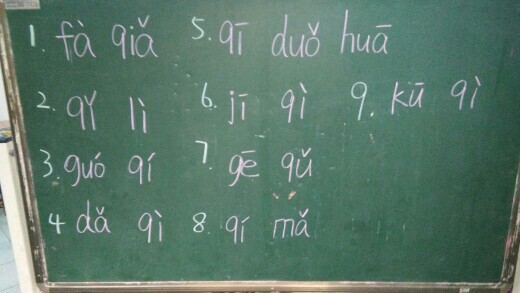 1. fà qiǎ 5. qī duǒ huā
2. qǐ lì 6. jī qì 9. kū qì
3. guó qí 7. gē qǔ
4 dǎ qì 8. qí mǎ